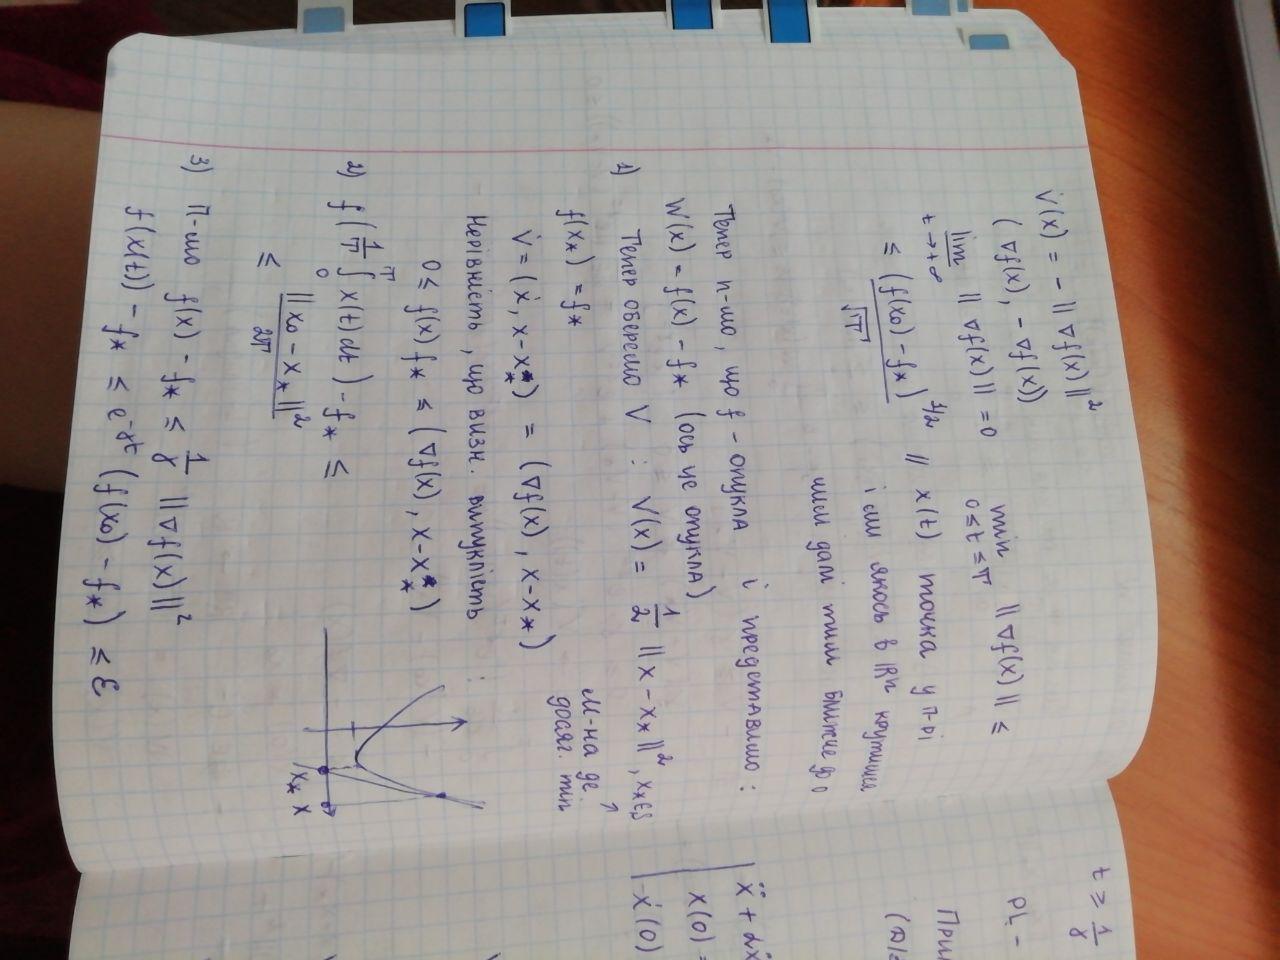 V̇(x) = - || ∇f(x) ||²
(∇f(x), -∇f(x))
lim || ∇f(x) || = 0
t → +∞
min || ∇f(x) || ≤
0 ≤ t ≤ T
≤ (f(x₀) - f*)^1/2 / √T
// x(t) точка у п-рі
і ми якось в ℝⁿ крутимся
чим далі тим ближче до 0
Тепер п-мо, що f - опукла і представимо :
W(x) = f(x) - f* (ось це опукла)
1) Тепер оберемо V : V(x) = 1/2 || x - x* ||², x* ∈ S
↑
М-на де
досяг. min
f(x*) = f*
V̇ = (ẋ, x - x*) = (∇f(x), x - x*)
Нерівність, що визн. випуклість :
0 ≤ f(x) f* ≤ (∇f(x), x - x*)
2) f( 1/T ∫₀ᵀ x(t) dt ) - f* ≤
≤ || x₀ - x* ||² / 2T
x* x
3) П-мо f(x) - f* ≤ 1/γ || ∇f(x) ||²
f(x(t)) - f* ≤ e^-γt (f(x₀) - f*) ≤ ε
t ≥ 1/γ
PL -
ẋ(0)
x(0) =